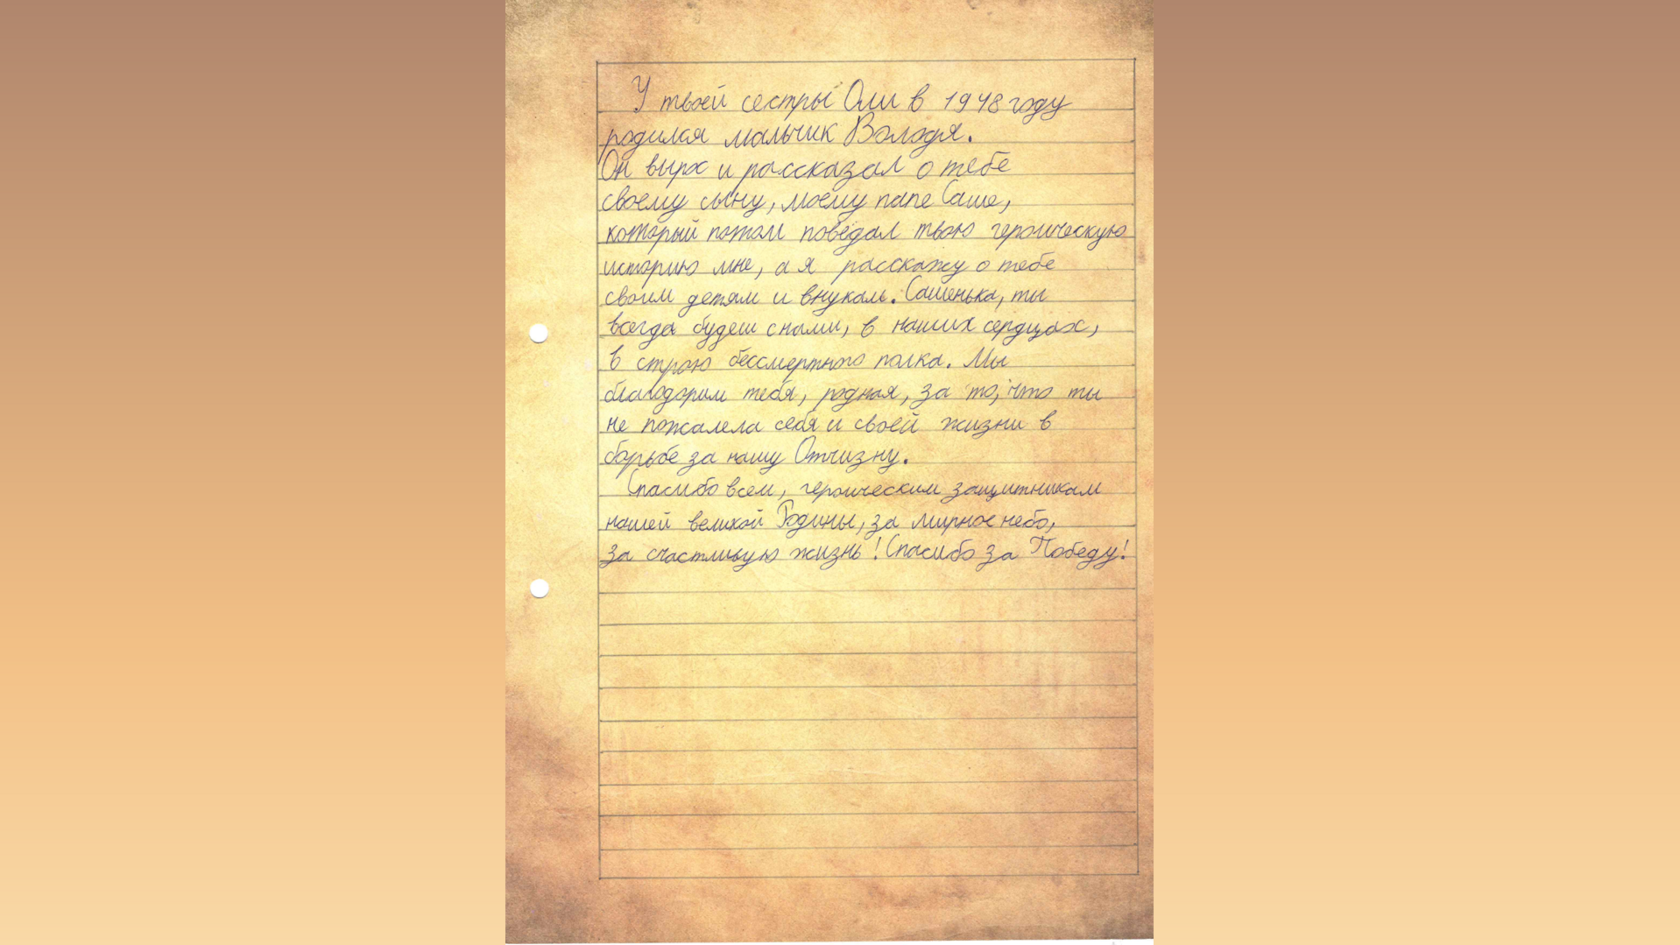 У твоей сестры Оли в 1948 году
родился мальчик Володя.
Он вырх и рассказал о тебе
своему сыну, моему папе Саше,
который потом поведал твою героическую
историю мне, а я расскажу о тебе
своим детям и внукам. Сашенька, ты
всегда будеш с нами, в наших сердцах,
в строю бессмертного полка. Мы
благодорим тебя, родная, за то, что ты
не пожалела себя и своей жизни в
борьбе за нашу Отчизну.
Спасибо всем, героическим защитникам
нашей великой Родины, за мирное небо,
за счастливую жизнь! Спасибо за Победу!